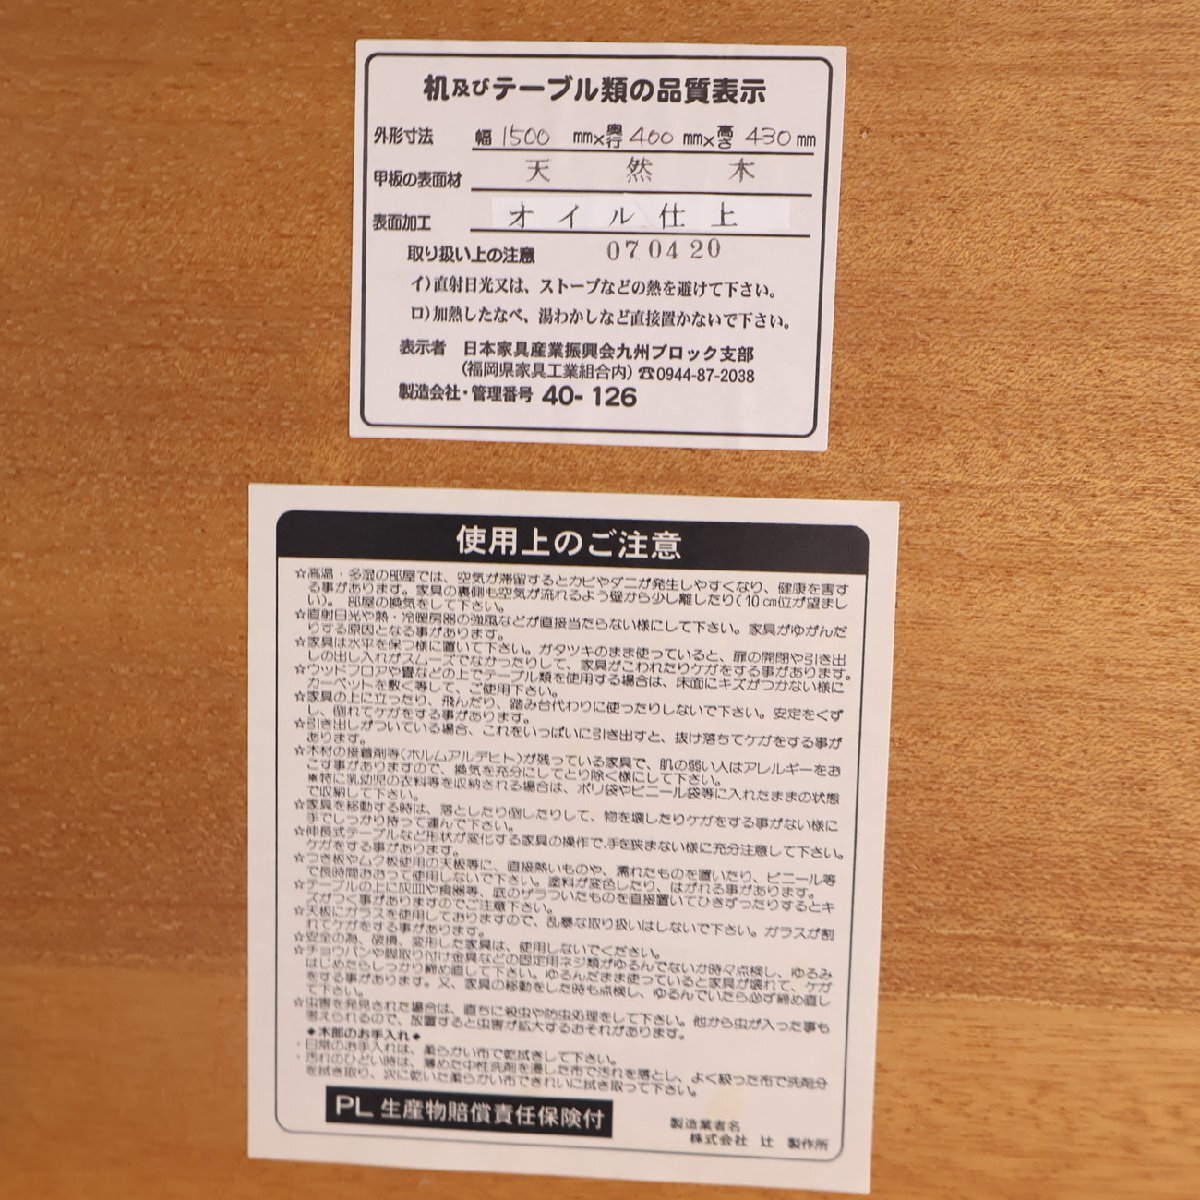 机及びテーブル類の品質表示
外形寸法 幅 1500 mm×奥行 400 mm×高さ 430 mm
甲板の表面材 天然木
表面加工 オイル仕上
取り扱い上の注意 070420
イ)直射日光又は、ストーブなどの熱を避けて下さい。
ロ)加熱したなべ、湯わかしなど直接置かないで下さい。
表示者 日本家具産業振興会九州ブロック支部
(福岡県家具工業組合内)☎0944-87-2038
製造会社・管理番号 40-126
使用上のご注意
☆高温・多湿の部屋では、空気が滞留するとカビやダニが発生しやすくなり、健康を害す
る事があります。家具の裏側も空気が流れるよう壁から少し離したり(10cm位が望まし
い)。 部屋の換気をして下さい。
☆直射日光や熱・冷暖房器の強風などが直接当たらない様にして下さい。家具がゆがんだ
りする原因となる事があります。
☆家具は水平を保つ様に置いて下さい。ガタツキのまま使っていると、扉の開閉や引き出
しの出し入れがスムーズでなかったりして、家具がこわれたりケガをする事があります。
☆ウッドフロアや畳などの上でテーブル類を使用する場合は、床面にキズがつかない様に
カーペットを敷く等して、ご使用下さい。
☆家具の上に立ったり、飛んだり、踏み台代わりに使ったりしないで下さい。安定をくず
し、倒れてケガをする事があります。
☆引き出しがついている場合、これをいっぱいに引き出すと、抜け落ちてケガをする事が
あります。
☆木材の接着剤等(ホルムアルデヒト)が残っている家具で、肌の弱い人はアレルギーをお
こす事がありますので、換気を充分にしてとり除く様にして下さい。
※特に乳幼児の衣料等を収納される場合は、ポリ袋やビニール袋等に入れたままの状態
で収納して下さい。
☆家具を移動する時は、落としたり倒したりして、物を壊したりケガをする事がない様に
手でしっかり持って運んで下さい。
☆伸長式テーブルなど形状が変化する家具の操作で、手を狭まない様に充分注意して下さい。
ケガをする事があります。
☆つき板やムク板使用の天板等に、直接熱いものや、濡れたものを置いたり、ビニール等
で長時間おおって使用しないで下さい。塗料が変色したり、はがれる事があります。
☆テーブルの上に灰皿や食器等、底のザラついたものを直接置いてひきずったりするとキ
ズがつく事がありますのでご注意下さい。
☆天板にガラスを使用しておりますので、乱暴な取り扱いはしないで下さい。ガラスが割
れてケガをする事があります。
☆安全の為、破損、変形した家具は、使用しないでください。
☆チョウバンや脚取り付け金具などの固定用ネジ類がゆるんでないか時々点検し、ゆるみ
はじめたらしっかり締め直して下さい。ゆるんだまま使っていると家具が壊れて、ケガ
をする事があります。又、家具の移動をした時も点検し、ゆるんでいたら必ず締め直し
て下さい。
☆虫害を発見された場合は、直ちに殺虫や防虫処理をして下さい。他から虫が入った事も
考えられるので、放置すると虫害が拡大するおそれがあります。
◆木部のお手入れ◆
・日常のお手入れは、柔らかい布で乾拭きして下さい。
・汚れのひどい時は、薄めた中性洗剤を浸した布で汚れを落とし、よく絞った布で洗剤分
を拭き取り、次に乾いた柔らかい布できれいに拭き取って下さい。
PL 生産物賠償責任保険付
製造業者名
株式会社 辻 製作所